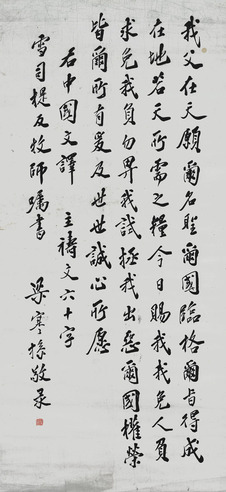 我父在天願爾名聖爾國臨格爾旨得成
在地若天所需之糧今日賜我我免人負
求免我負勿畀我試拯我出惡爾國權榮
皆爾所有爰及世世誠心所願
右中國文譯 主禱文六十字
雪司提反牧師囑書
梁寒操敬录